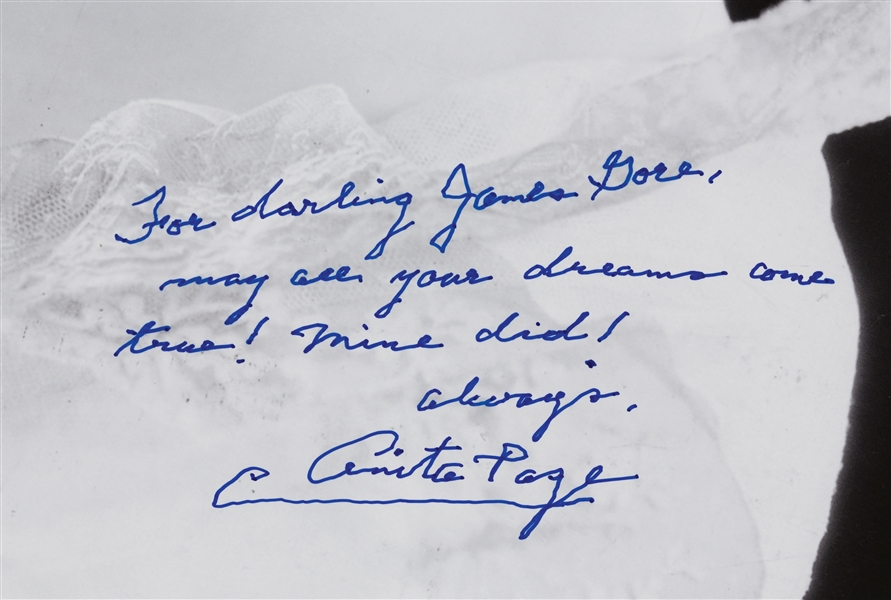 For darling James Gore,
may all your dreams come
true! Mine did!
always,
Anita Page